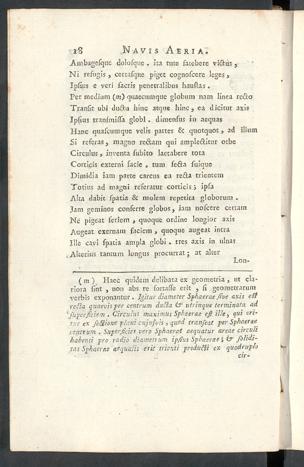 18 NAVIS AERIA.
Ambagesque dolosque. ita tute fatebere victus,
Ni refugis, certasque piget cognoscere leges,
Ipsius e veri sacris penetralibus haustas.
Per mediam (m) quaecumque globum nam linea recto
Transit ubi ducta hinc atque hinc, ea dicitur axis
Ipsius transmissa globi. dimensus in aequas
Hanc quascumque velis partes & quotquot, ad illum
Si referas, magno rectam qui amplectitur orbe
Circulus, inventa subito laetabere tota
Corticis externi facie. tum secta fuique
Dimidia iam parte careus ea recta trientem
Totius ad magni referatur corticis; ipsa
Alta dabit spatia & molem repetita globorum.
Jam geminos conferre globos, iam noscere certam
Ne pigeat seriem, quoque ordine longior axis
Augeat externam faciem, quoque augeat intra
Ille cavi spatia ampla globi. tres axis in ulnas
Alterius tantum longus procurrat; at alter
Lon-
(m) Haec quidem delibata ex geometria, ut cla-
riora sint, non abs re fortasse erit, si geometrarum
verbis exponantur. Igitur diameter Sphaerae sive axis est
recta quaevis per centrum ducta & utrinque terminata ad
superficiem. Circulus maximus Sphaerae est ille, qui ori-
tur ex sectione plani cujusvis, quod transeat per Sphaerae
centrum. Superficies vero Sphaerae aequatur areae circuli
habenti pro radio diametrum ipsius Sphaerae; & solidi-
tas Sphaerae aequalis erit trienti producti ex quadruplo
cir-